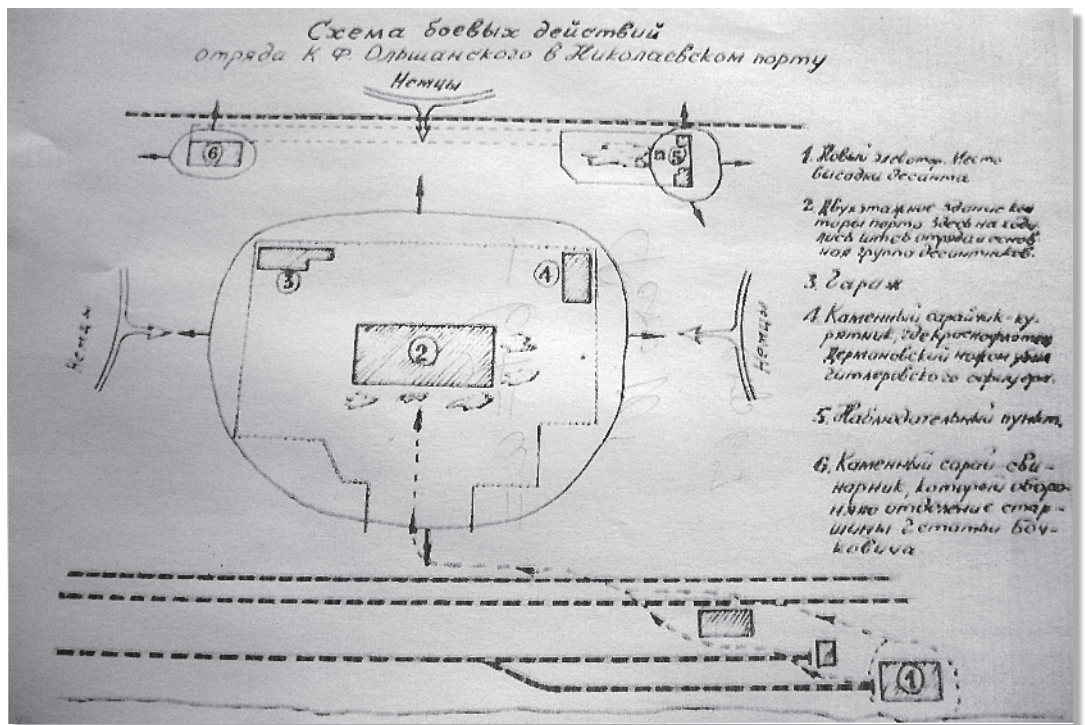 Схема боевых действий
отряда К Ф. Ольшанского в Николаевском порту
Немцы
6
5
3
4
2
Немцы
Немцы
1
1. Новый элеватор. Место
высадки десанта
2. Двухэтажное здание кон
торы порта здесь находи
лись штаб отряда и основ
ная группа десантников.
3. Гараж
4. Каменный сарайчик-ку-
рятник, где краснофлотец
Дермановский ножом убил
гитлеровского офицера.
5. Наблюдательный пункт,
6. Каменный сарай-сви-
нарник, который оборо-
няло отделение стар-
шины 2 статьи Боч-
ковича